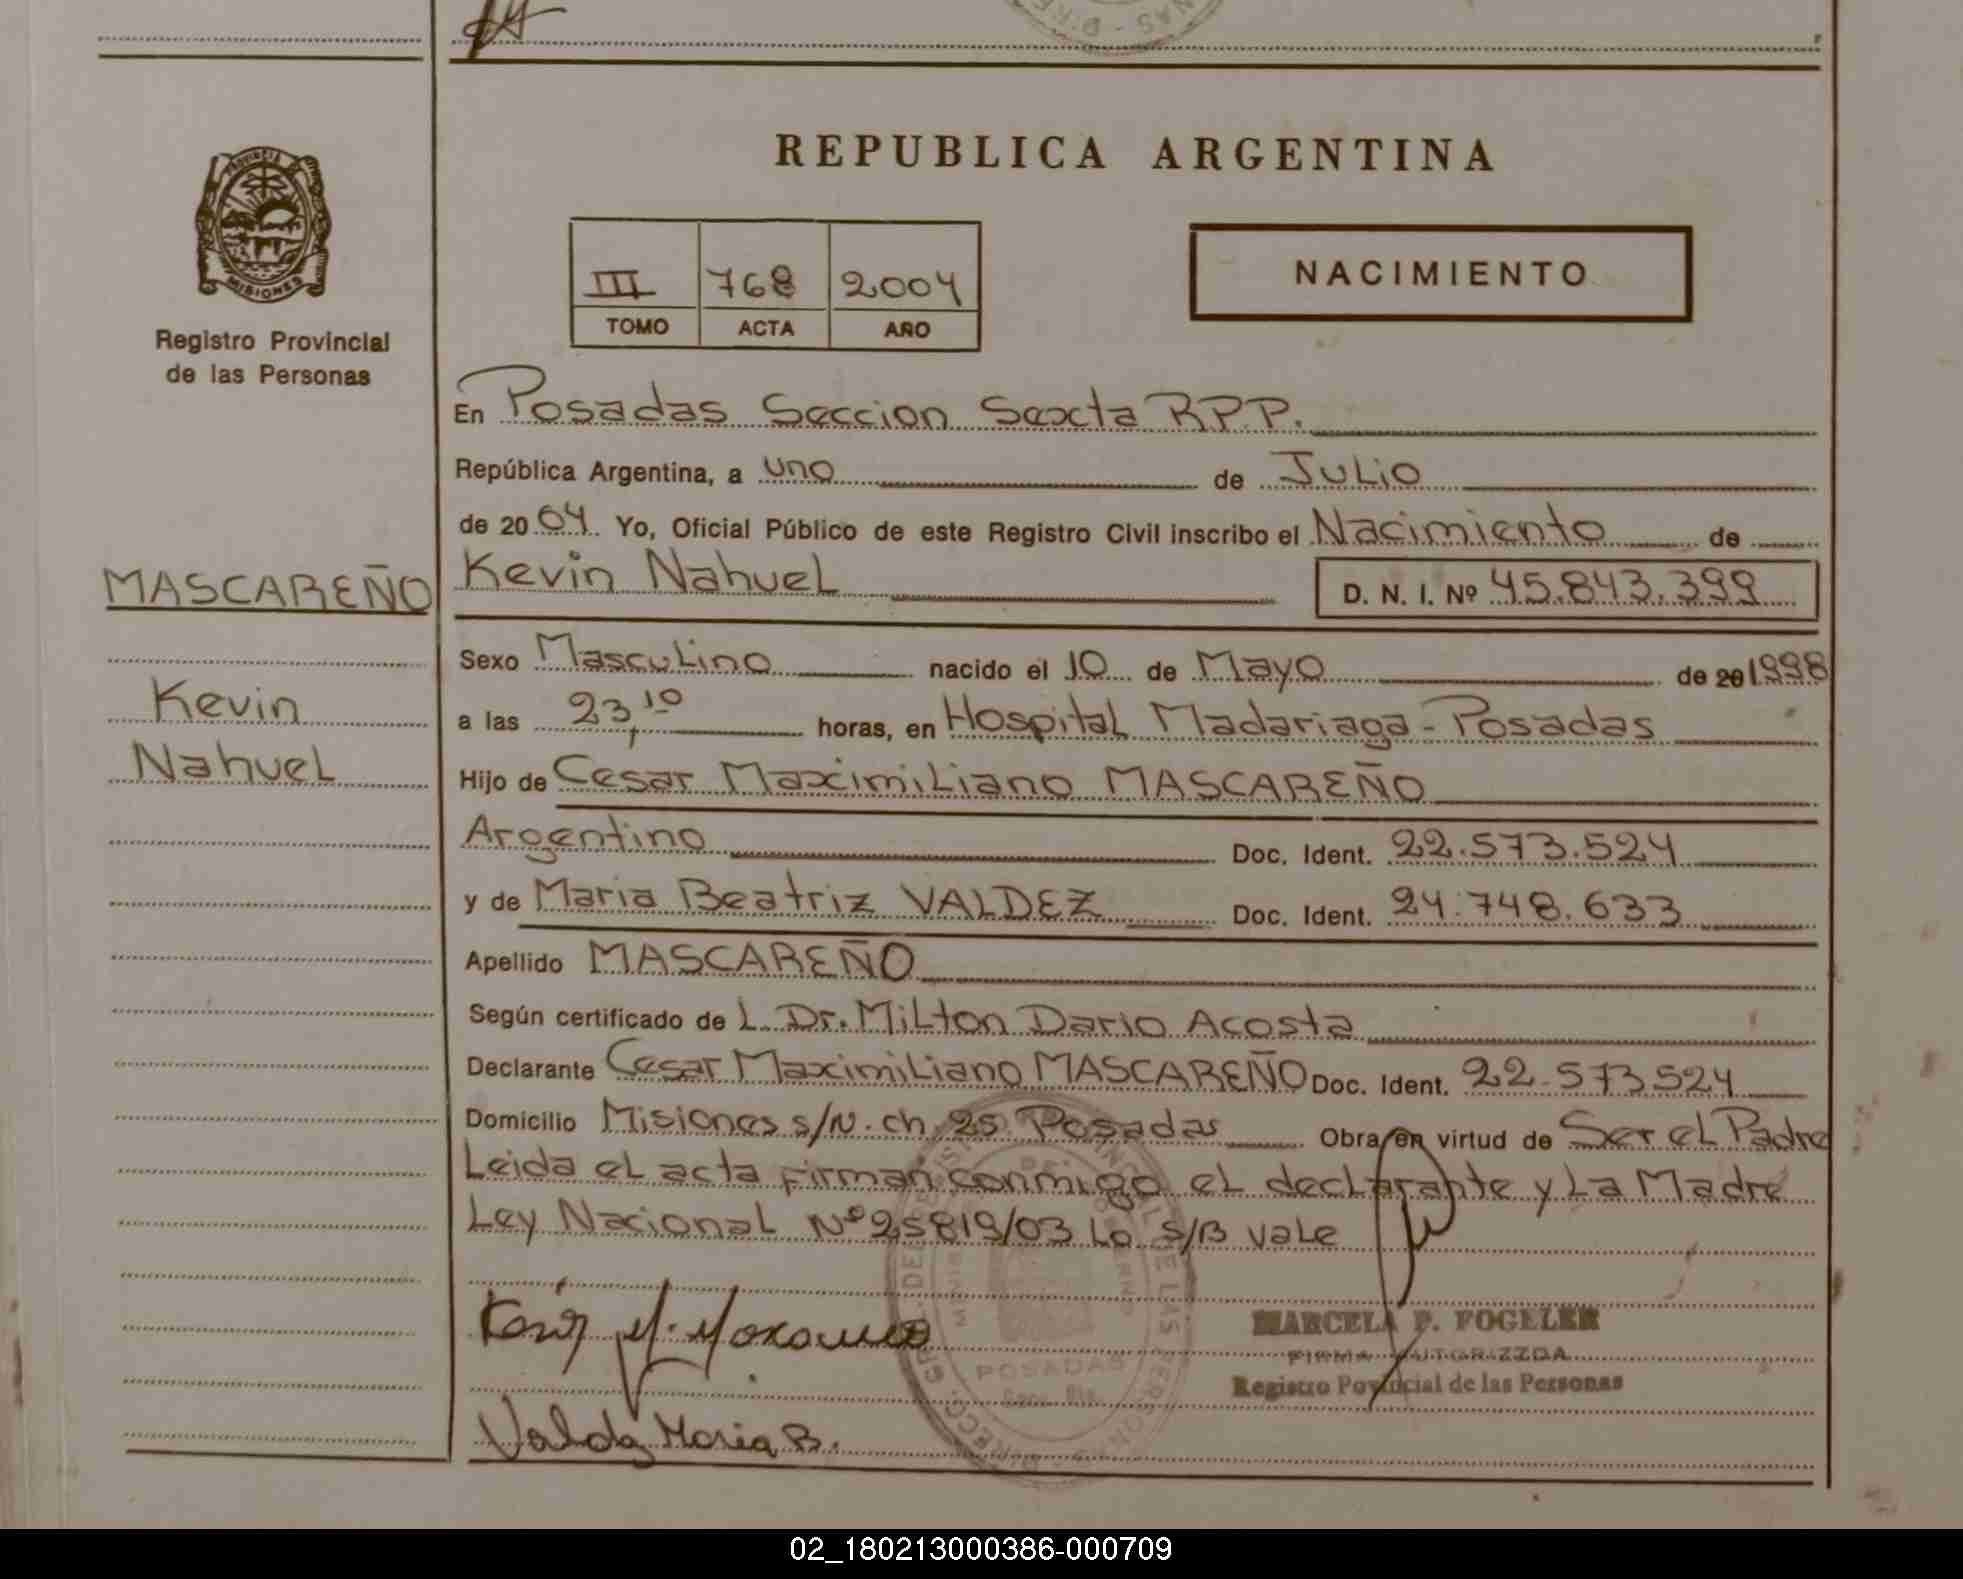 REPUBLICA ARGENTINA
PROVINCIA
MISIONES
Registro Provincial
de las Personas
III 768 2004
TOMO ACTA AÑO
NACIMIENTO
En Posadas Seccion Sexta R.P.P.
República Argentina, a uno de Julio
de 2004 Yo, Oficial Público de este Registro Civil inscribo el Nacimiento de
MASCAREÑO
Kevin Nahuel D. N. I. Nº 45.843.399
Sexo Masculino nacido el 10 de Mayo de 20 1998
Kevin
Nahuel
a las 23,10 horas, en Hospital Madariaga - Posadas
Hijo de Cesar Maximiliano MASCAREÑO
Argentino Doc. Ident. 22.573.524
y de Maria Beatriz VALDEZ Doc. Ident. 24.748.633
Apellido MASCAREÑO
Según certificado de L. Dr. Milton Dario Acosta
Declarante Cesar Maximiliano MASCAREÑO Doc. Ident. 22.573524
Domicilio Misiones s/N. ch. 25 Posadas Obra en virtud de Ser el Padre
Leida el acta firman conmigo el declarante y La Madre
Ley Nacional Nº 25819/03 Lo s/B vale
MARCELA P. FOGELER
FIRMA AUTORIZZDA
Registro Povincial de las Personas
POSADAS
Valdez Maria B.
02_180213000386-000709